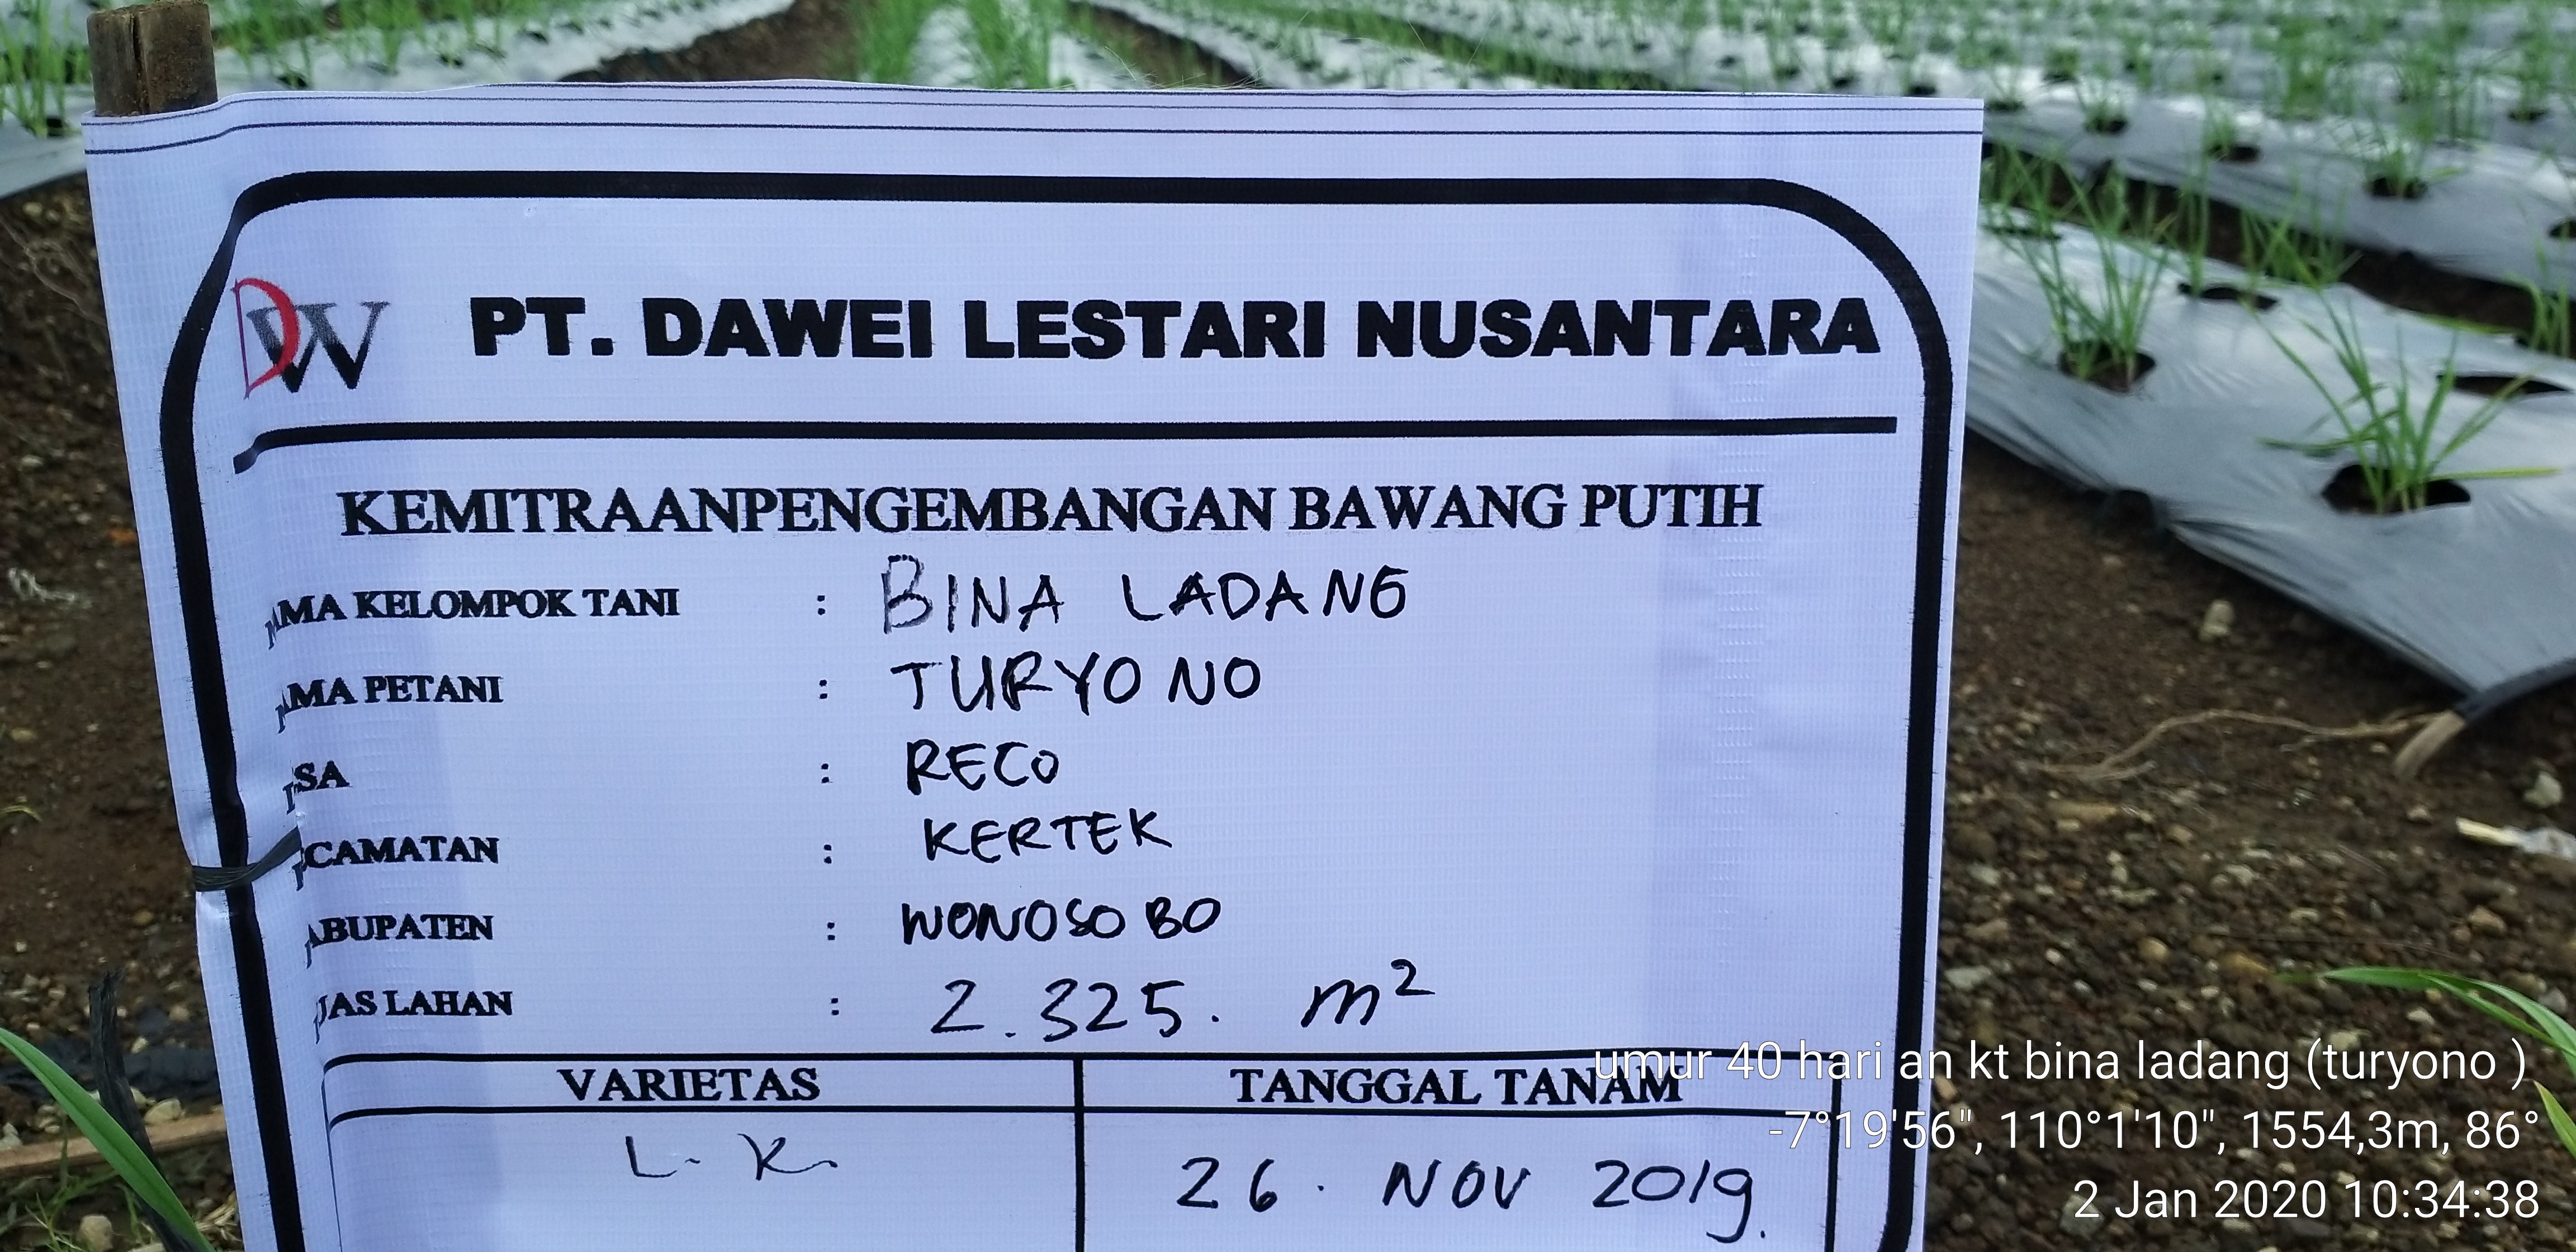 DW PT. DAWEI LESTARI NUSANTARA
KEMITRAANPENGEMBANGAN BAWANG PUTIH
AMA KELOMPOK TANI : BINA LADANG
AMA PETANI : TURYONO
SA : RECO
CAMATAN : KERTEK
ABUPATEN : WONOSOBO
UAS LAHAN : 2.325. m²
VARIETAS TANGGAL TANAM
L. K. 26. NOV 2019.
umur 40 hari an kt bina ladang (turyono )
-7°19'56", 110°1'10", 1554,3m, 86°
2 Jan 2020 10:34:38